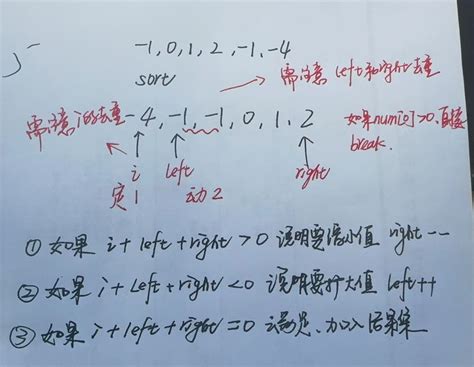 -1, 0, 1, 2, -1, -4
sort
需注意 left和right去重
需注意i的去重
-4, -1, -1, 0, 1, 2
如果num[i]>0,直接
break.
i left right
定1 动2
① 如果 i+left+right>0 说明要缩小值 right--
② 如果 i+left+right<0 说明要扩大值 left++
③ 如果 i+left+right=0 满足、加入结果集